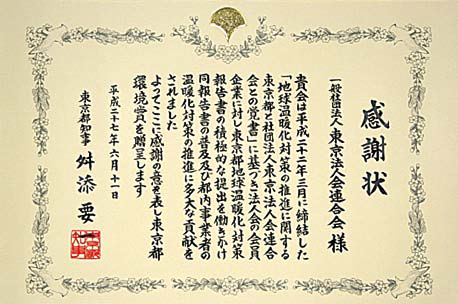 感謝状
一般社団法人東京法人会連合会 様
貴会は平成二十二年三月に締結した
「地球温暖化対策の推進に関する
東京都と社団法人東京法人会連合
会との覚書」に基づき法人会の会員
企業に対し東京都地球温暖化対策
報告書の積極的な提出を働きかけ
同報告書の普及及び都内事業者の
温暖化対策の推進に多大な貢献を
されました
よってここに感謝の意を表し東京都
環境賞を贈呈します
平成二十七年六月十一日
東京都知事 舛添要一